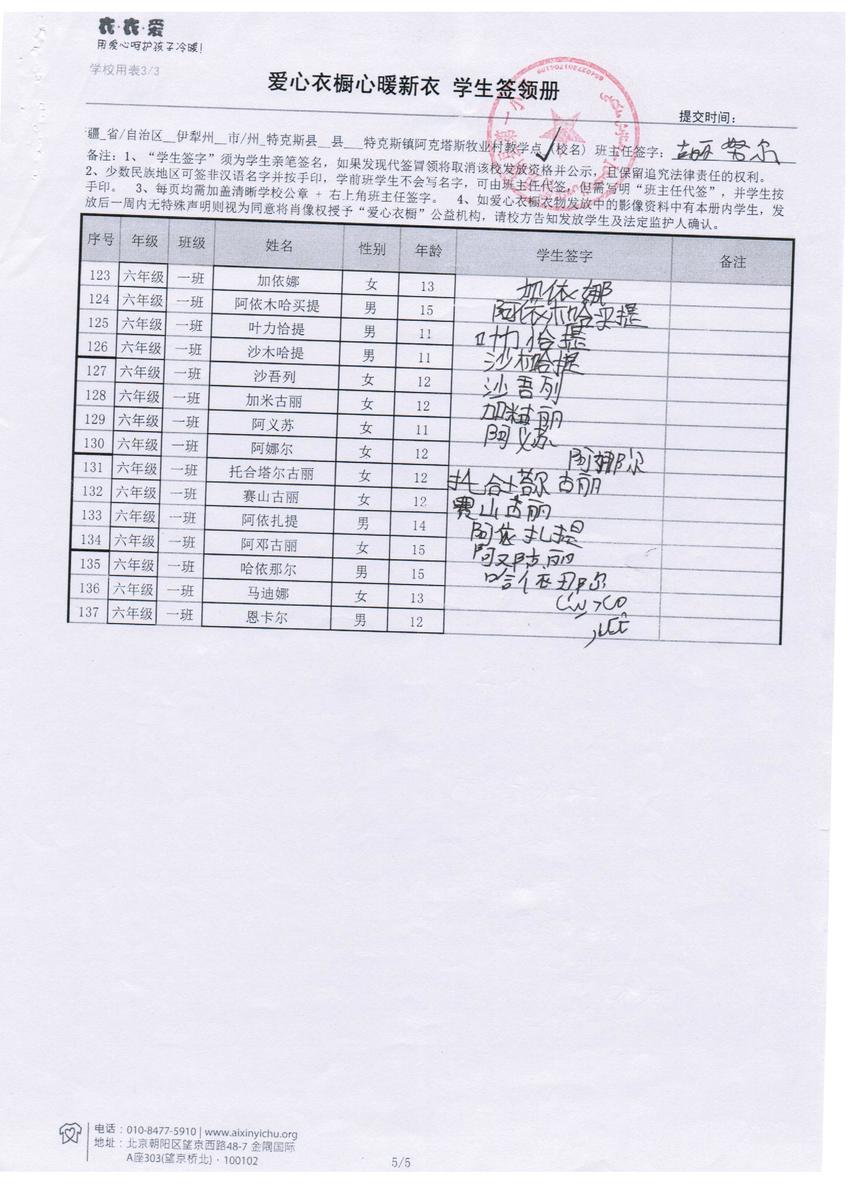 衣·衣·爱
用爱心呵护孩子冷暖!
学校用表3/3
爱心衣橱心暖新衣 学生签领册
提交时间:
疆_省/自治区__伊犁州__市/州_特克斯县__县___特克斯镇阿克塔斯牧业村教学点 (校名) 班主任签字: 努尔
备注: 1、“学生签字”须为学生亲笔签名, 如果发现代签冒领将取消该校发放资格并公示, 且保留追究法律责任的权利。
2、少数民族地区可签非汉语名字并按手印, 学前班学生不会写名字, 可由班主任代签, 但需写明“班主任代签”, 并学生按
手印。 3、每页均需加盖清晰学校公章 + 右上角班主任签字。 4、如爱心衣橱衣物发放中的影像资料中有本册内学生, 发
放后一周内无特殊声明则视为同意将肖像权授予“爱心衣橱”公益机构, 请校方告知发放学生及法定监护人确认。
序号 年级 班级 姓名 性别 年龄 学生签字 备注
123 六年级 一班 加依娜 女 13 加依娜
124 六年级 一班 阿依木哈买提 男 15 阿依木哈买提
125 六年级 一班 叶力恰提 男 11 叶力恰提
126 六年级 一班 沙木哈提 男 11 沙木哈提
127 六年级 一班 沙吾列 女 12 沙吾列
128 六年级 一班 加米古丽 女 12 加米古丽
129 六年级 一班 阿义苏 女 11 阿义苏
130 六年级 一班 阿娜尔 女 12 阿娜尔
131 六年级 一班 托合塔尔古丽 女 12 托合塔尔古丽
132 六年级 一班 赛山古丽 女 12 赛山古丽
133 六年级 一班 阿依扎提 男 14 阿依扎提
134 六年级 一班 阿邓古丽 女 15 阿邓古丽
135 六年级 一班 哈依那尔 男 15 哈依那尔
136 六年级 一班 马迪娜 女 13
137 六年级 一班 恩卡尔 男 12
电话: 010-8477-5910 | www.aixinyichu.org
地址: 北京朝阳区望京西路48-7 金隅国际
A座303(望京桥北) · 100102
5/5